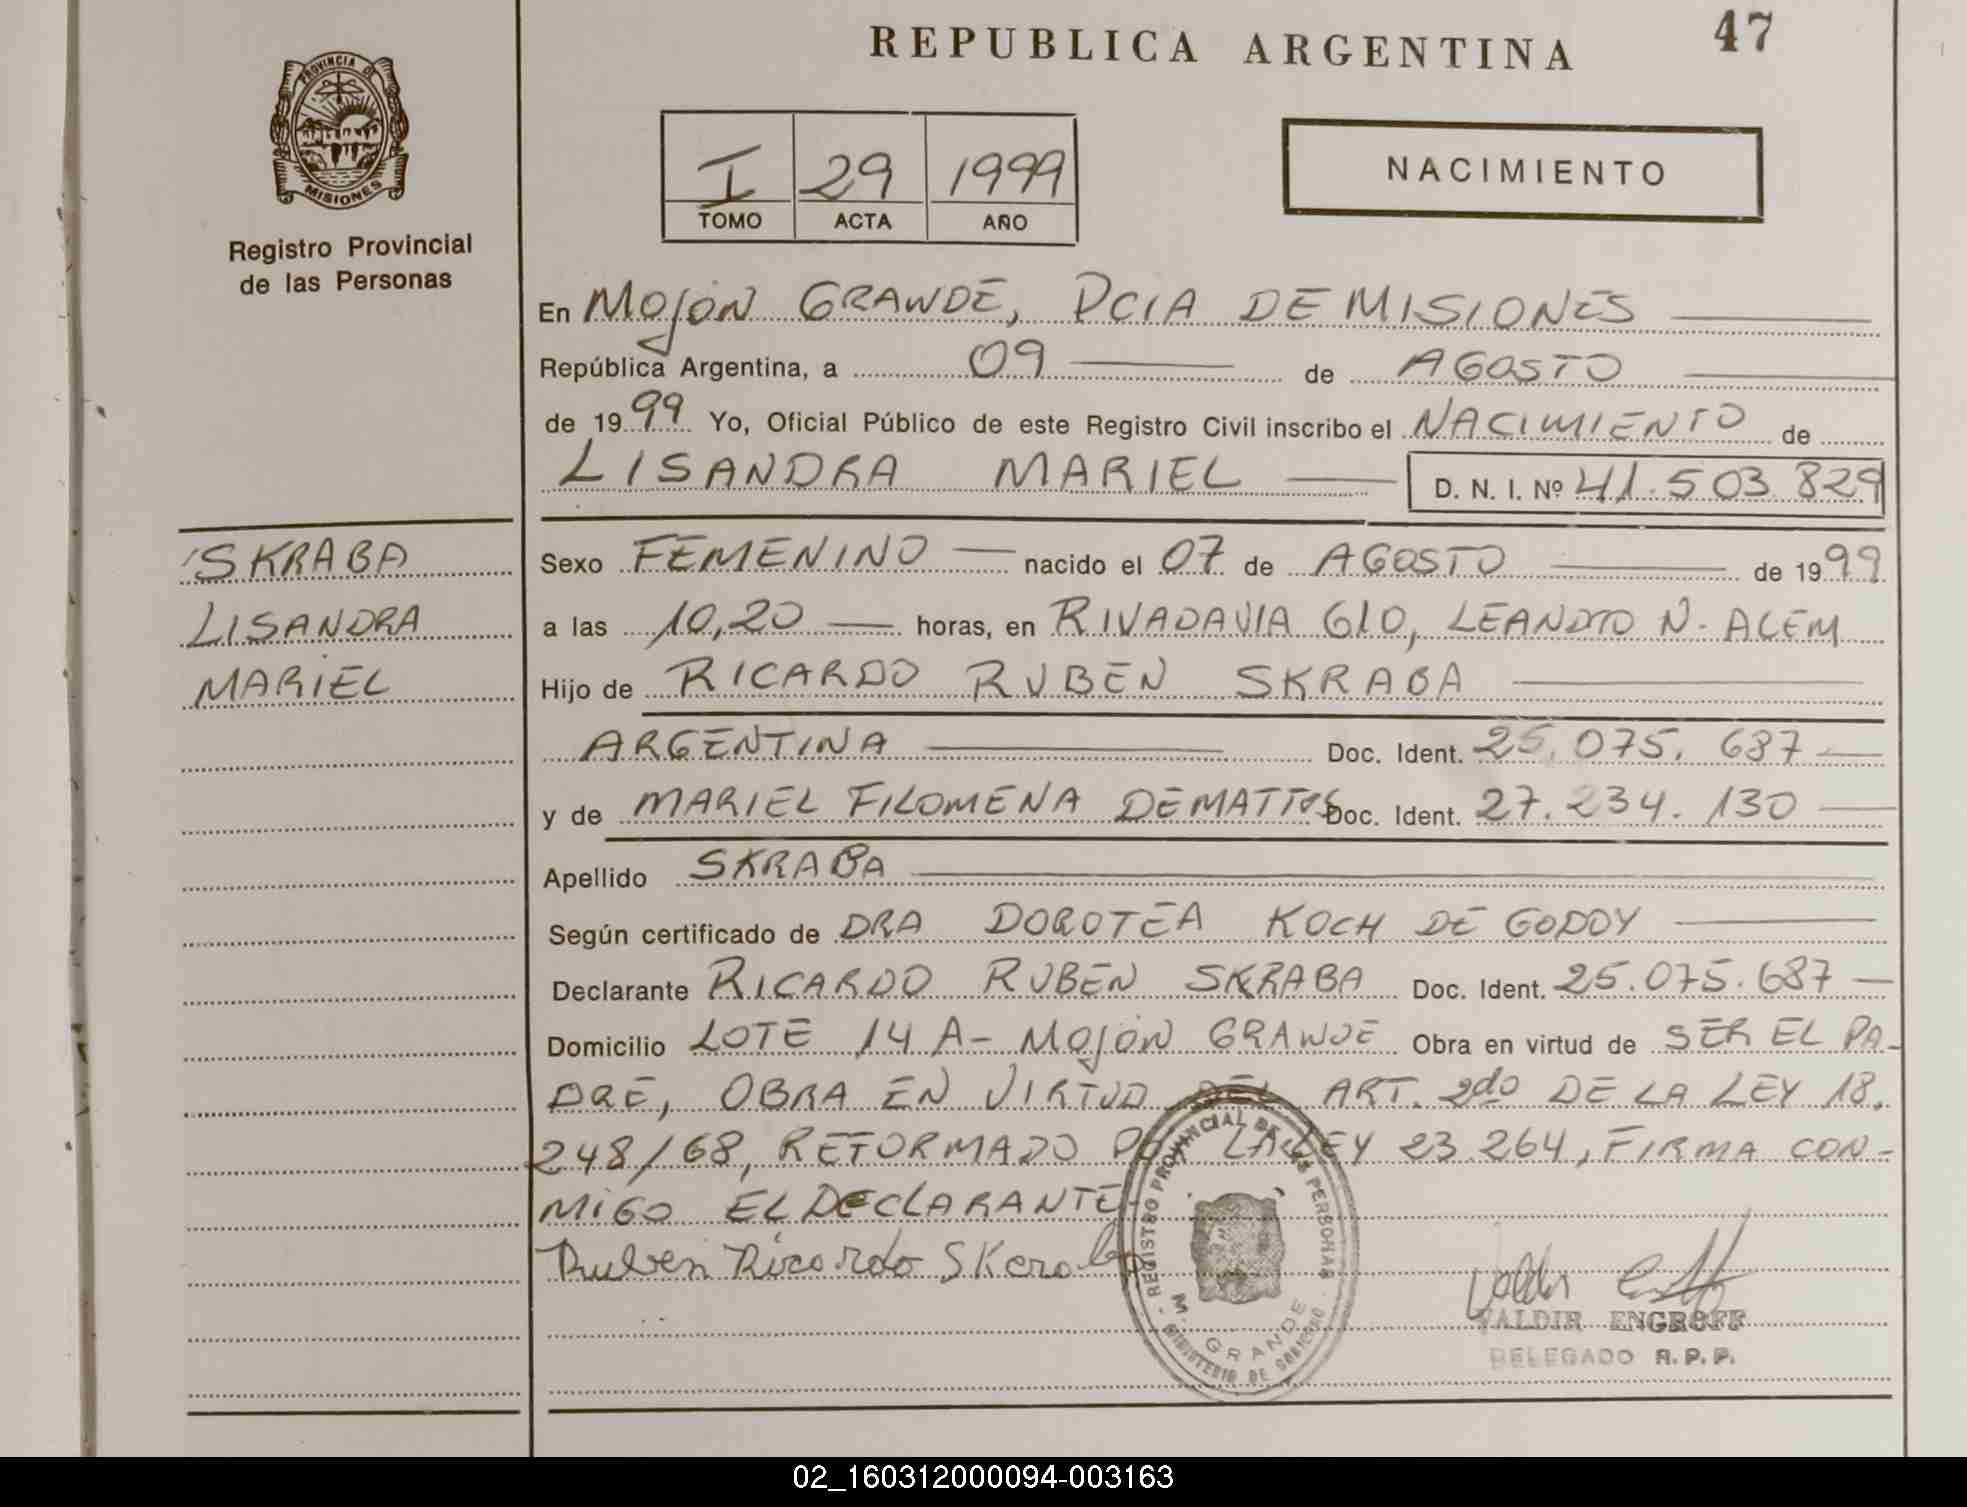 REPUBLICA ARGENTINA
47
PROVINCIA DE
MISIONES
Registro Provincial
de las Personas
I 29 1999
TOMO ACTA AÑO
NACIMIENTO
En MOJÓN GRANDE, PCIA DE MISIONES
República Argentina, a 09 de AGOSTO
de 1999 Yo, Oficial Público de este Registro Civil inscribo el NACIMIENTO de
LISANDRA MARIEL D. N. I. Nº 41.503.829
SKRABA
LISANDRA
MARIEL
Sexo FEMENINO nacido el 07 de AGOSTO de 1999
a las 10,20 horas, en RIVADAVIA 610, LEANDRO N. ALEM
Hijo de RICARDO RUBEN SKRABA
ARGENTINA Doc. Ident. 25.075.687
y de MARIEL FILOMENA DEMATTOS Doc. Ident. 27.234.130
Apellido SKRABA
Según certificado de DRA DOROTEA KOCH DE GODOY
Declarante RICARDO RUBEN SKRABA Doc. Ident. 25.075.687
Domicilio LOTE 14 A- MOJÓN GRANDE Obra en virtud de SER EL PA-
DRE, OBRA EN VIRTUD DEL ART. 2do DE LA LEY 18.
248/68, REFORMADO POR LA LEY 23.264, FIRMA CON-
MIGO EL DECLARANTE-
Ruben Ricardo Skrab
REGISTRO PROVINCIAL DE LAS PERSONAS
M. GRANDE
MINISTERIO DE GOBIERNO
VALDIR ENGROFF
DELEGADO R.P.P.
02_160312000094-003163